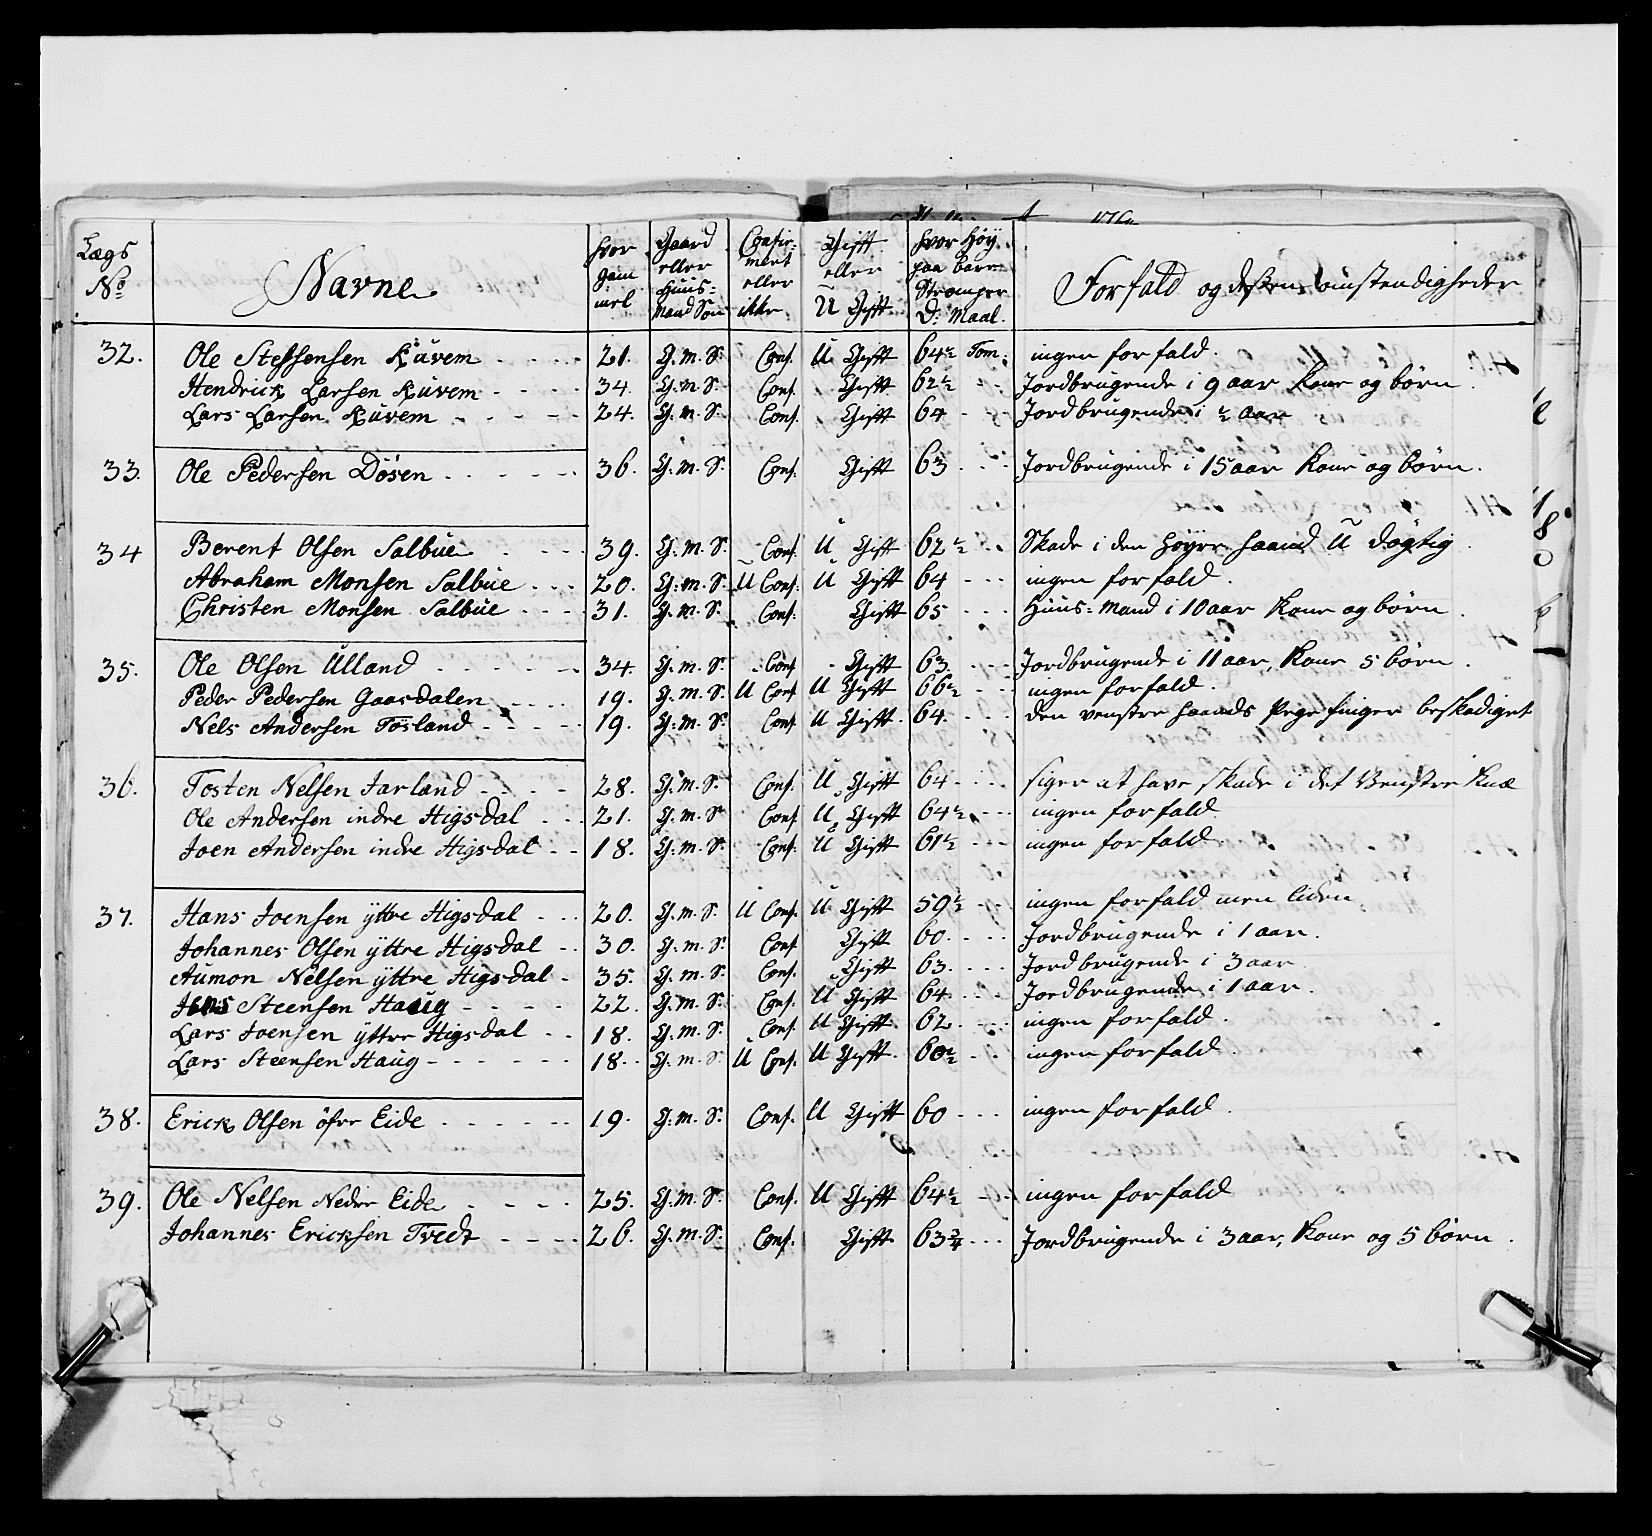 Lægs No Navne hvor gammel Gaard eller Huus-Mand Søn Confirmert eller ikke. Gift eller U Gift. hvor Høy paa bare Strømper D: Maal. Forfald og dessen omstendigheder
32. Ole Steffensen Kuvem 21. G. M. S. Conf. U Gift 64½ Tom. ingen forfald.
Hendrick Larsen Kuvem 34. G. M. S. Conf. Gift 62½ Jordbrugende i 9 aar Kone og børn
Lars Larsen Kuvem 24. G. M. S. Conf. Gift 64 Jordbrugende i ½ aar
33. Ole Pedersen Døsen 36. G. M. S. Conf. Gift 63 Jordbrugende i 15 aar Kone og børn.
34 Berent Olsen Salbue 39. G. M. S. Conf. U Gift 62½ Skade i den høyre haand U døgtig
Abraham Monsen Salbue 20. G. M. S. U Conf. U Gift 64 ingen forfald.
Christen Monsen Salbue 31. G. M. S. Conf. Gift 65 Huus-Mand i 10 aar Kone og børn
35. Ole Olsen Ulland 34. G. M. S. Conf Gift 63. Jordbrugende i 11 aar, Kone 5 børn.
Peder Pedersen Gaasdalen 19. G. M. S. U Conf U Gift 66½ ingen forfald.
Nels Andersen Tøsland 19. G. M. S. Conf. U Gift. 64. den venstre haands Pege finger beskadiget
36. Tosten Nelsen Jarland 28. G. M. S. Conf. U Gift 64 siger at have skade i det Venstre Knæ
Ole Andersen indre Higsdal 21. G. M. S Conf U Gift 64½ ingen forfald
Joen Andersen indre Higsdal 18. G. M. S. Conf. U Gift 61½ ingen forfald
37. Hans Joensen yttre Higsdal 20. G. M. S. U Conf. U Gift 59½ ingen forfald men liden
Johannes Olsen yttre Higsdal 30. G. M. S. Conf Gift 60. Jordbrugende i 1 aar.
Aumon Nelsen yttre Higsdal 35. G. M. S. Conf. Gift 63. Jordbrugende i 3 aar
Jens Steensen Haug 22. G. M. S. Conf. U Gift 64 Jordbrugende i 1 aar.
Lars Joensen yttre Higsdal 18. G. M. S. Conf. U Gift. 62. ingen forfald.
Lars Steensen Haug 18. G. M. S U Conf. U Gift. 60½ ingen forfald
38. Erick Olsen øfre Eide 19. G. M. S. Conf. U Gift 60 ingen forfald.
39. Ole Nelsen Nedre Eide 25. G. M. S. Conf. U Gift 64½ ingen forfald
Johannes Ericksen Tvedt 26. G. M. S. Conf. Gift 63¾ Jordbrugende i 3 aar, Kone og 5 børn.